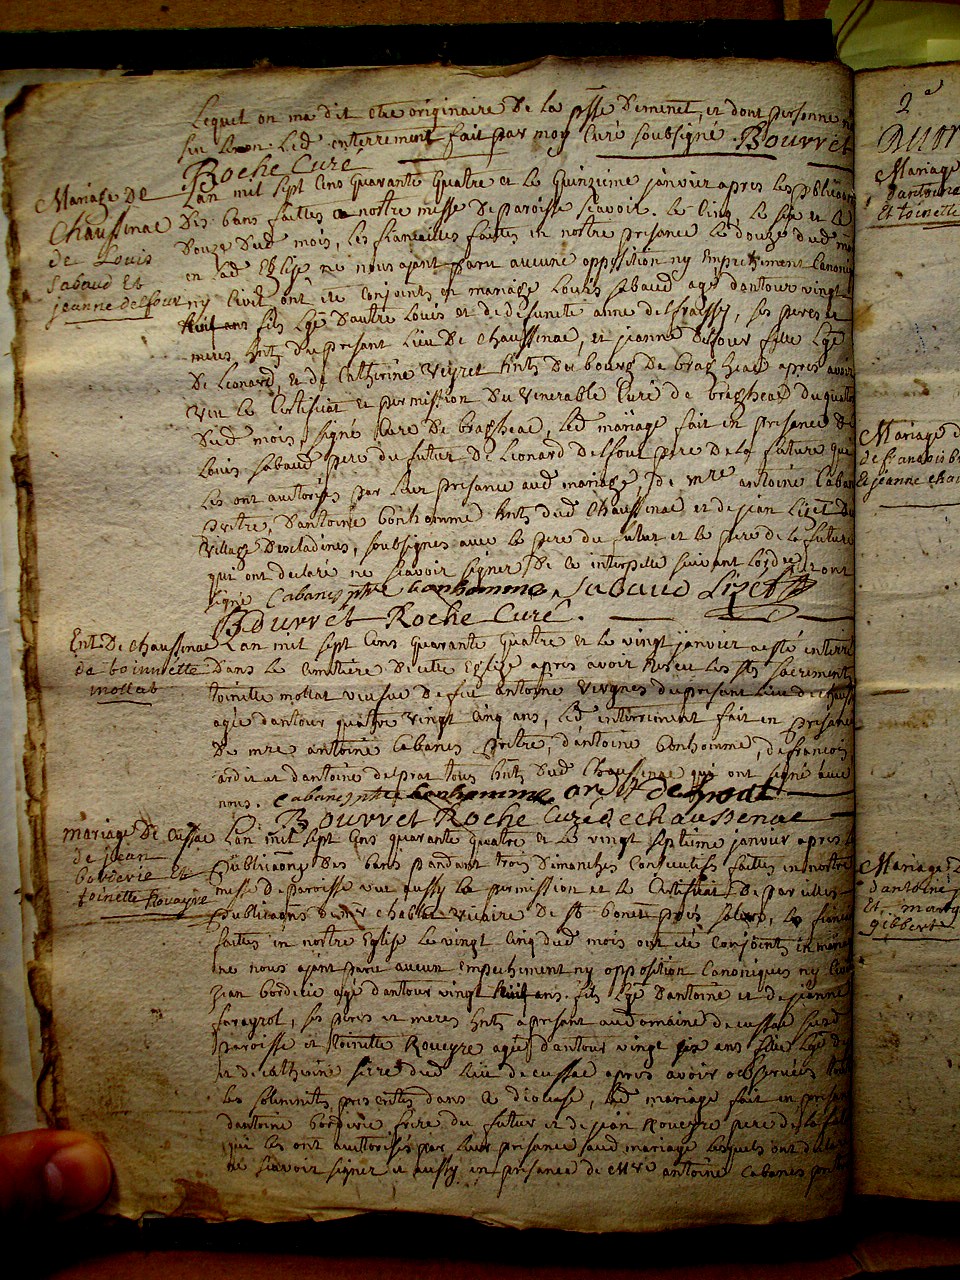 Lequel on ma dit etre originaire de la psse Demenet, et dont personne
Led enterrement fait par moy Curé soubsigné. Bourret
Roche Curé
Mariage De
Chaussinac
de Louis
Sabaud Et
jeanne delfour
Lan mil sept Cens quarante quatre et le quinzieme janvier apres les publica
Des bans faittes a nostre messe de paroisse scavoir. le Cinq, le six et le
Douze dud mois, les fiancailles faites in nostre presance le douze dud
en lad Eglise ne nous ajant paru aucune opposition ny Empechiment Canoniq
ny Civil ont été Conjoints en mariage Louis Sabaud agé dantour vingt
huit ans fils Lge Dautre Louis et de defunte anne delfraissy, ses peres et
meres, hnts du presant Lieu De Chaussinac, et jeanne Delfour fille Lge
De Leonard, et de Catherine Veyret hnts du bourg De bragheac apres avoir
veu le Certificat et permission Du Venerable Curé de bragheac du quatre
Dud mois, signé Curé De bragheac, Led mariage fait in presance de
Louis Sabaud pere du futur De Lionard delfour pere de la future qui
Les ont authorisés par leur presance aud mariage, De mre antoine Caban
pretre, Dantoine bonhomme hnts dud Chaussinac et de jean Lizet du
village Descladines, soubsignes avec le pere du futur et le pere de la future
qui ont declaré ne scavoir signer De ce interpellé suivant Lordce et ont
signé Cabanes ptre bonhomme Sabaud Lizet
Bourret Roche Curé.
Ent De Chaussinac
de toinnette
mollat
Lan mil sept Cens quarante quatre et le vingt janvier a esté enterré
Dans le Cimitiere De cette Eglise apres avoir Reseu les sts sacrements
toinette mollat veufue de feu antoine Vergnes du presant Lieu de Chauss
agée dantour quatre vingt Cinq ans, Led enterrement fait en presance
De mre antoine Cabanes pretre, dantoine bonhomme, de francois
ardit et dantoine delprat tous hnts dud Chaussinac qui ont signé avec
nous. Cabanes ptre bonhomme ardit delprat
Bourret Roche Curé de chaussenac
mariage De Cussac
de jean
borderie Et
toinette Rouayre
Lan mil sept Cens quarante quatre et le vingt septieme janvier apres la
Publicaons Des bans pandant trois Dimanches Consecutifs faittes in nostre
messe de paroisse vue aussy la permission et le Certificat De pareilles
Publicaons De mr Vicaire De st bonet pres salers, les fiances
faites in nostre Eglise le vingt Cinq dud mois ont été Conjoints in mariag
ne nous ajant paru aucun Empechiment ny opposition Canoniques ny Civil
jean borderie agé dantour vingt huit ans. fils Lge Dantoine et de jeanne
farayrol, ses peres et meres hnts apresant au domaine de cussac susd
paroisse et toinette Roueyre agée dantour vingt six ans fille Lge de
et de catherine dud Lieu de cussac apres avoir observées
les solemnits prescrites dans ce diocese, Led mariage fait in presan
dantoine borderie frere du futur et de jean Roueyre pere de la fut
qui les ont authorisés par leur presance aud mariage lesquels ont declar
ne scavoir signer et aussy in presance de mre antoine Cabanes pretre
2e
Mariage
dantoine
Et toinette
Mariage d
de francois b
Et jeanne
Mariage D
dantoine
Et
gibberte